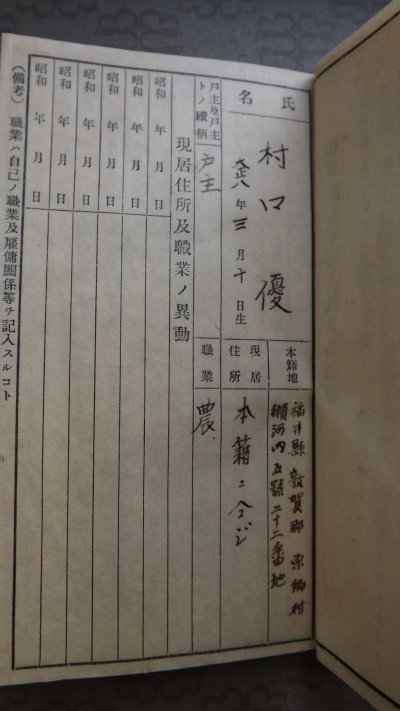 氏名
村口 優
大正八年三月十日生
本籍地
福井縣敦賀郡東郷村
獺河内五號二十二番地
現居住所
本籍ニ仝ジ
戸主及戸主トノ續柄
戸主
職業
農
現居住所及職業ノ異動
昭和 年 月 日
昭和 年 月 日
昭和 年 月 日
昭和 年 月 日
昭和 年 月 日
昭和 年 月 日
(備考) 職業ハ自己ノ職業及雇傭關係等ヲ記入スルコト